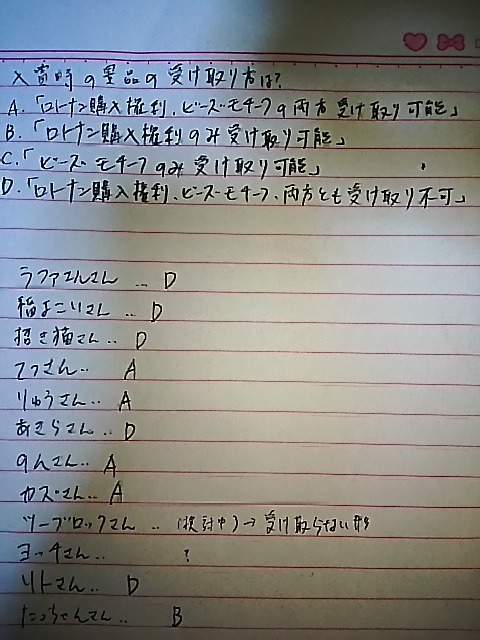 入賞時の景品の受け取り方は?
A.「ロトナン購入権利、ビーズモチーフの両方受け取り可能」
B.「ロトナン購入権利のみ受け取り可能」
C.「ビーズモチーフのみ受け取り可能」
D.「ロトナン購入権利、ビーズモチーフ、両方とも受け取り不可」
ラファエルさん … D
稲よこいさん … D
招き猫さん… D
てつさん… A
りゅうさん… A
あきらさん… D
のんさん… A
カズさん… A
ツーブロックさん … (検討中)→受け取らない
ヨッチさん… ?
リトさん… D
たっちゃんさん… B